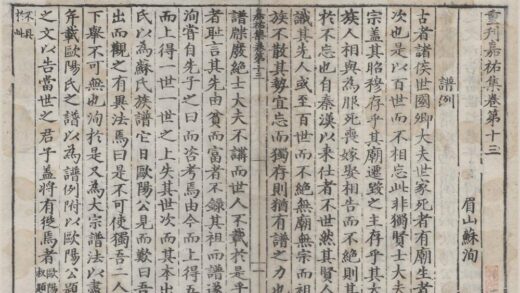 重刊嘉祐集卷第十三
眉山蘇洵
譜例
古者諸侯世國卿大夫世家死者有廟生者
次也是以百世而不相忘此非獨賢士大夫
宗蓋其昭穆存乎其廟遷毀之主存乎其大
族人相與為服死喪嫁娶相告而不絕則其
於不忘也自秦漢以來仕者不世然其賢人
識其先人或至百世而不絕無廟無宗而祖
族不散其勢宜忘而獨存則猶有譜之力也
嘉祐集卷第十三
一
譜牒廢絕士大夫不講而世人不載於是乎
者耻言其先由貧而富者不錄其祖而譜遂
洵嘗自先子之言而咨考焉由今而上得五
而上得一世一世之上失其世次而其本出
氏以為蘇氏族譜它日歐陽公見而歎曰吾
出而觀之有異法焉曰是不可使獨吾二人
下舉不可無也洵於是又為大宗譜法以盡
并載歐陽氏之譜以為譜例附以歐陽公題
之文以告當世之君子蓋將有從焉者歐陽
不具於此